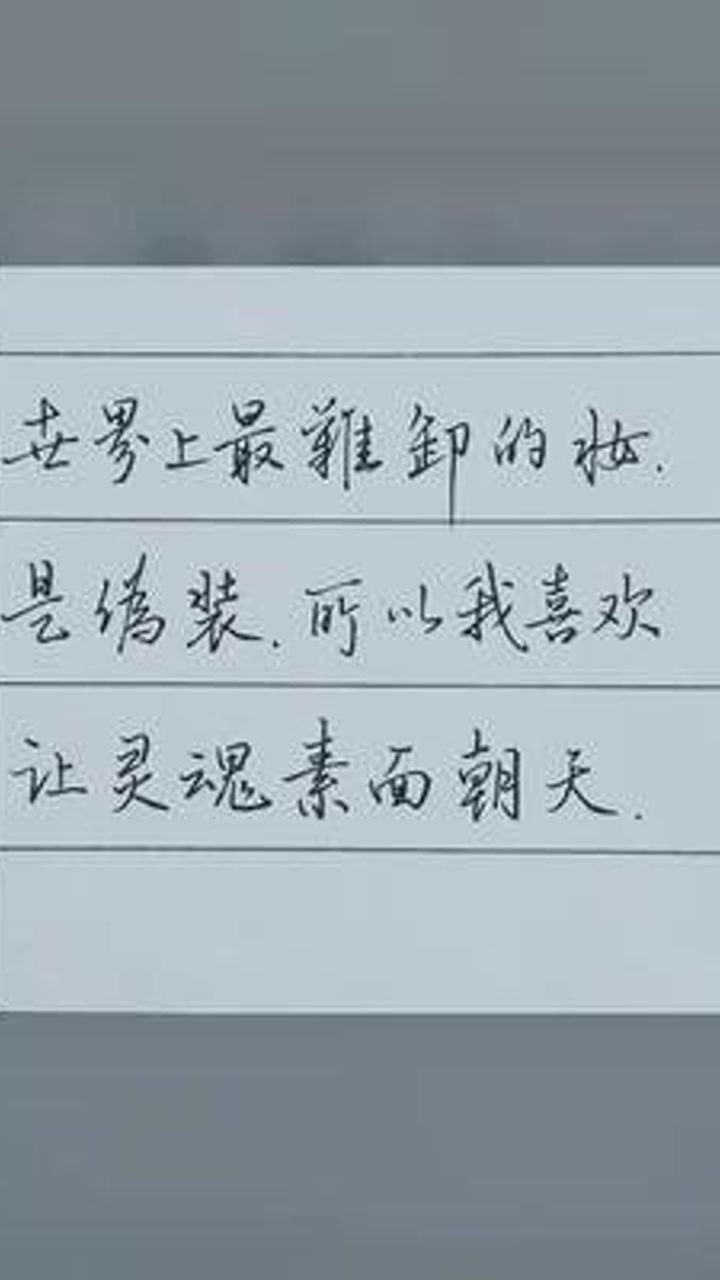 世界上最難卸的妆.
是偽装.所以我喜欢
让灵魂素面朝天.